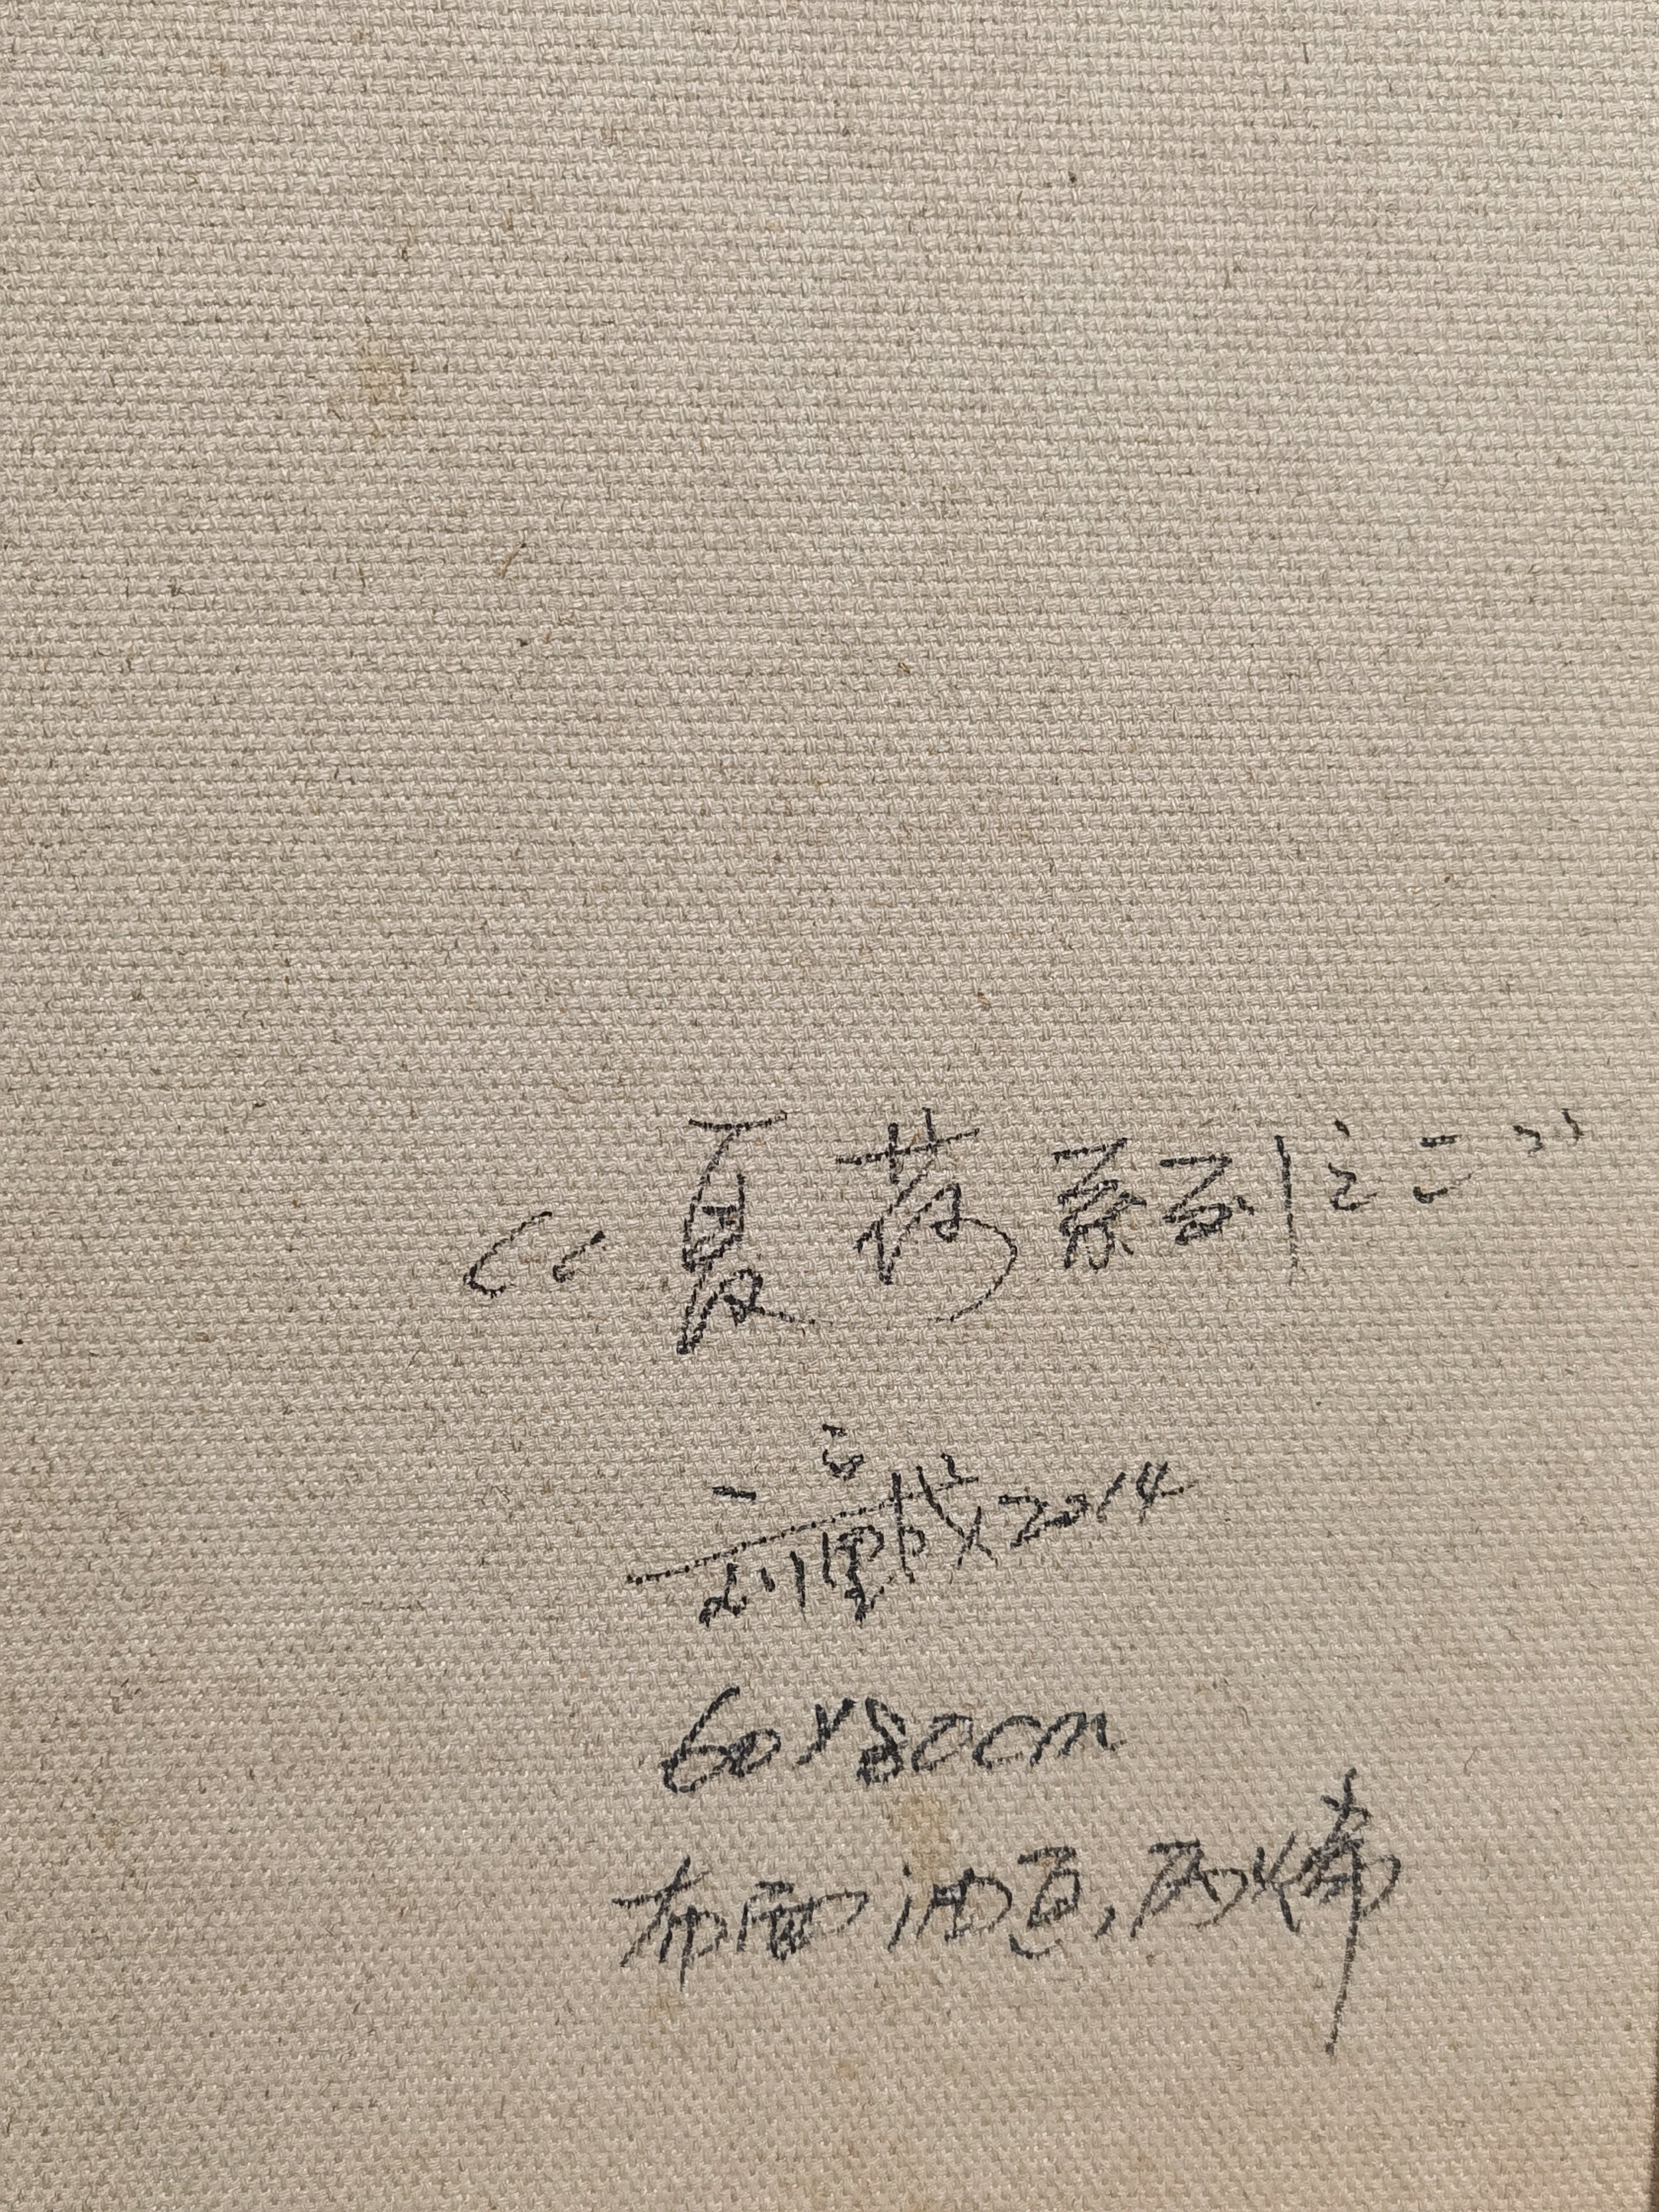 “夏荷系列之二”
2014
60×80cm
布面油画,丙烯